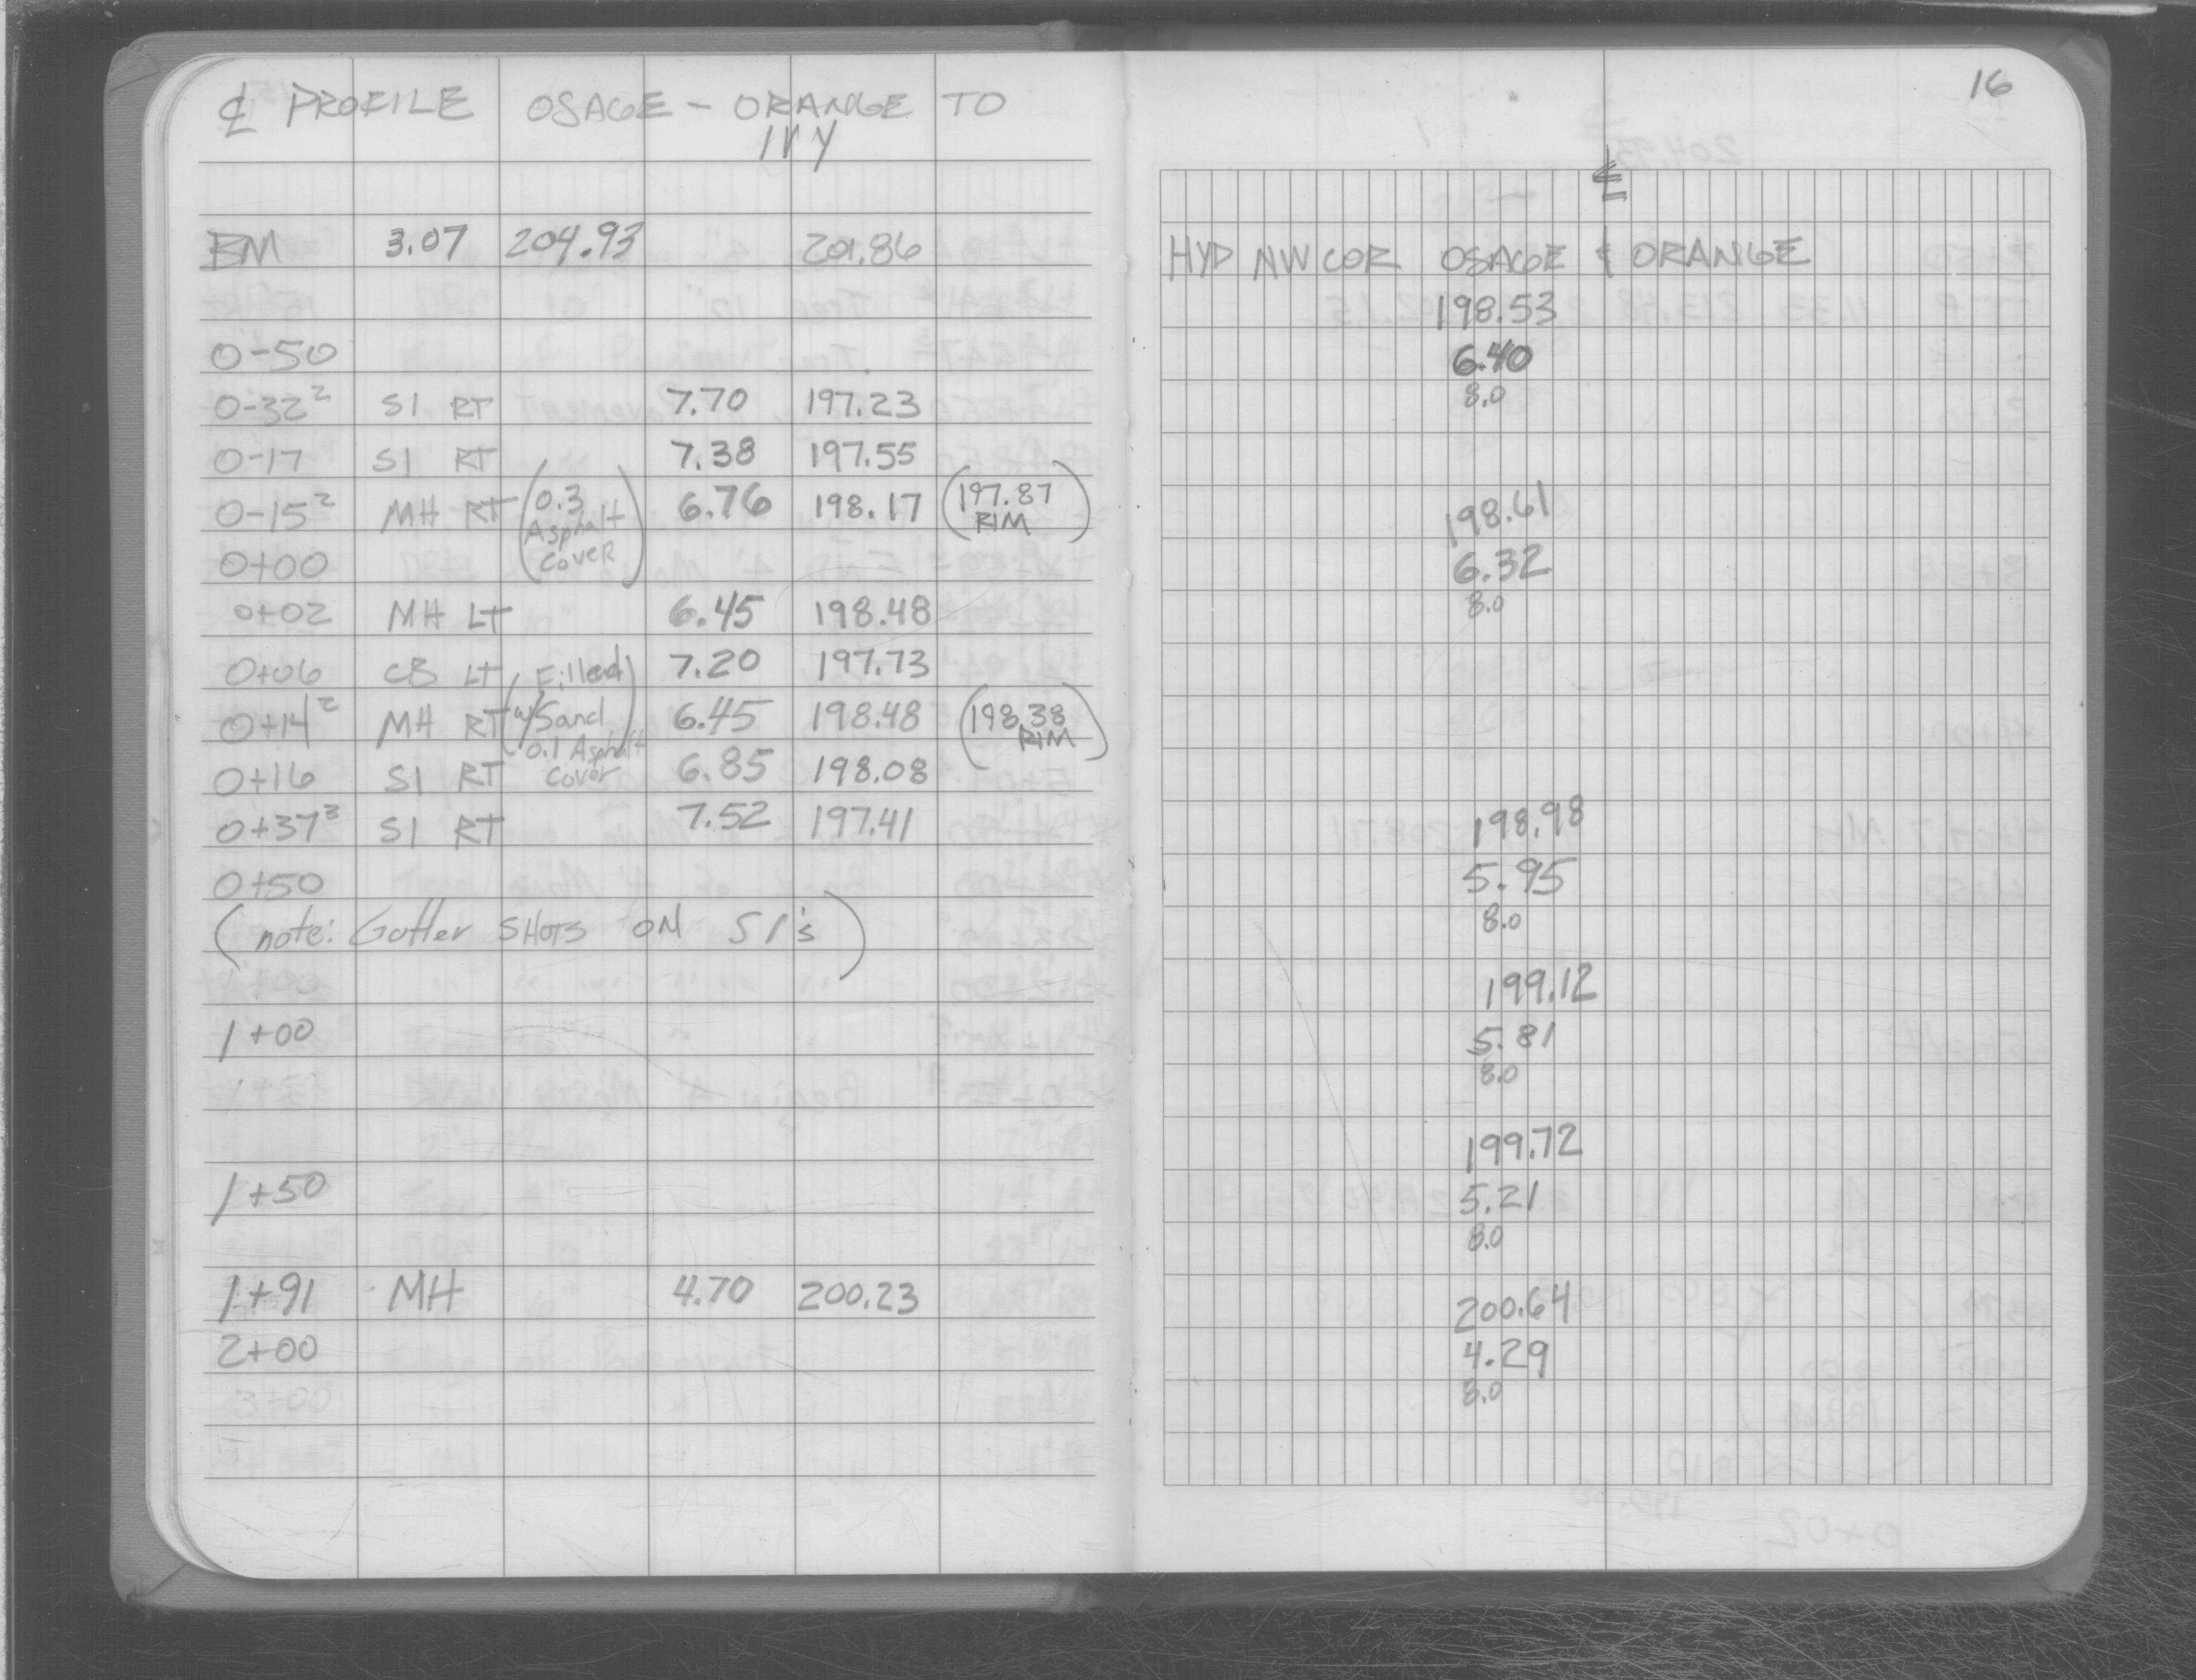 ℄ PROFILE OSAGE - ORANGE TO
IVY
BM 3.07 204.93 201.86
0-50
0-32² SI RT 7.70 197.23
0-17 SI RT 7.38 197.55
0-15² MH RT (0.3 Asphalt Cover) 6.76 198.17 (197.87 RIM)
0+00
0+02 MH LT 6.45 198.48
0+06 CB LT 7.20 197.73
0+14² MH RT (Filled w/Sand 0.1 Asphalt Cover) 6.45 198.48 (198.38 RIM)
0+16 SI RT 6.85 198.08
0+37³ SI RT 7.52 197.41
0+50
(note: Gutter SHOTS ON SI's)
1+00
1+50
1+91 MH 4.70 200.23
2+00
3+00
16
℄
HYD NW COR OSAGE & ORANGE
198.53
6.40
8.0
198.61
6.32
8.0
198.98
5.95
8.0
199.12
5.81
8.0
199.72
5.21
8.0
200.64
4.29
8.0